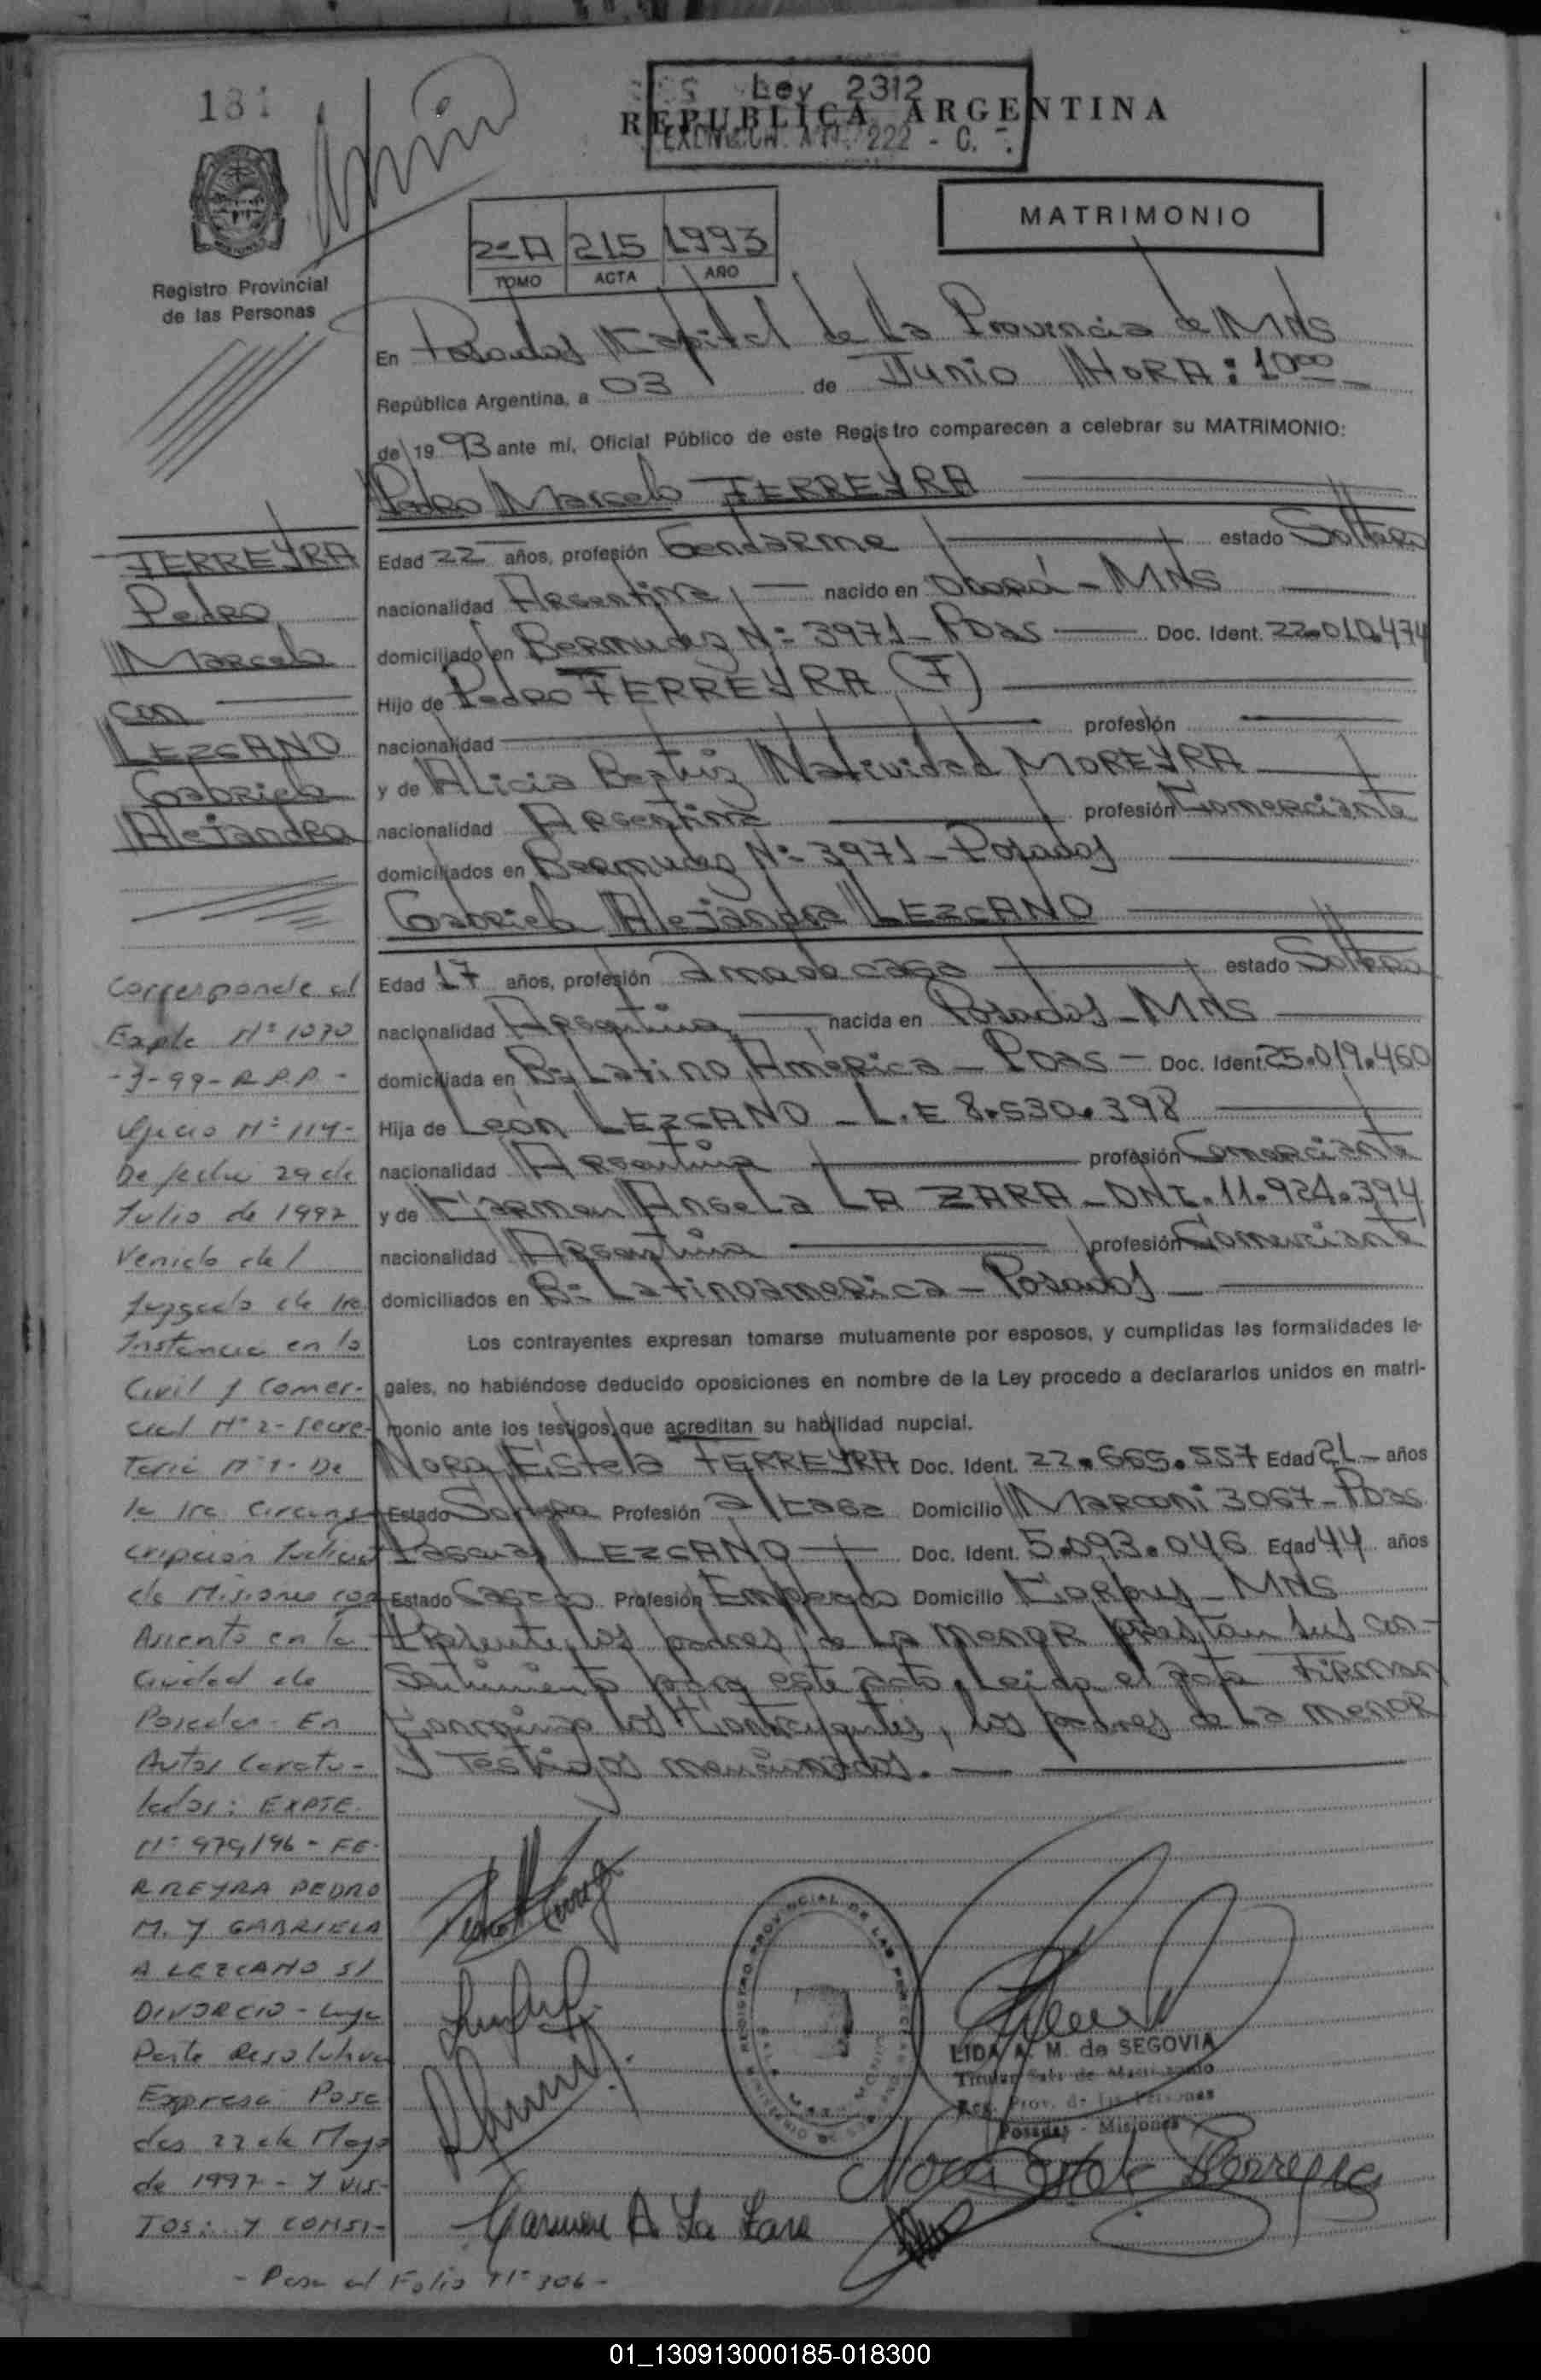 181
Ley 2312
REPUBLICA ARGENTINA
222 - C.
MATRIMONIO
2º A 215 1993
TOMO ACTA AÑO
Registro Provincial
de las Personas
En Posadas Capital de la Provincia de Mnes
República Argentina, a 03 de Junio HORA: 10⁰⁰
de 1993 ante mí, Oficial Público de este Registro comparecen a celebrar su MATRIMONIO:
Pedro Marcelo FERREYRA
Edad 22 años, profesión Gendarme estado Soltero
nacionalidad Argentina nacido en Oberá - Mnes
domiciliado en Bermudez Nº 3971 - Pdas Doc. Ident. 22.010.474
Hijo de Pedro FERREYRA (F)
nacionalidad profesión
y de Alicia Beatriz Natividad MOREYRA
nacionalidad Argentina profesión Comerciante
domiciliados en Bermudez Nº 3971 - Posadas
Gabriela Alejandra LEZCANO
Edad 17 años, profesión ama de casa estado Soltera
nacionalidad Argentina nacida en Posadas - Mnes
domiciliada en Bº Latino América - Pdas - Doc. Ident. 25.019.460
Hija de León LEZCANO - L.E 8.530.398
nacionalidad Argentina profesión Comerciante
y de Carmen Angela LA ZARA - DNI. 11.924.394
nacionalidad Argentina profesión Comerciante
domiciliados en Bº Latinoamerica - Posadas
Los contrayentes expresan tomarse mutuamente por esposos, y cumplidas las formalidades le-
gales, no habiéndose deducido oposiciones en nombre de la Ley procedo a declararlos unidos en matri-
monio ante los testigos que acreditan su habilidad nupcial.
Nora Estela FERREYRA Doc. Ident. 22.665.557 Edad 21 años
Estado Soltera Profesión a/ casa Domicilio Marconi 3067 - Pdas
Pascual LEZCANO Doc. Ident. 5.093.046 Edad 44 años
Estado Casado Profesión Empleado Domicilio Corpus - Mnes
Presente los padres de la menor prestan sus con-
sentimiento para este acto. Leida el acta Firman
conmigo los Contrayentes, los padres de la menor
y Testigos mencionados.
FERREYRA
Pedro
Marcelo
con
LEZCANO
Gabriela
Alejandra
Corresponde al
Expte Nº 1070
-J-99-R.P.P-
Oficio Nº 114-
De fecha 29 de
Julio de 1997
Venido del
Juzgado de 1re.
Instancia en lo
Civil y Comer-
cial Nº 2 - Secre-
taria Nº 1 - De
la 1ra. Circuns-
cripcion Judicial
de Misiones con
Asiento en la
Ciudad de
Posadas - En
Autos Caratu-
lados: EXPTE.
Nº 979/96 - FE-
RREYRA PEDRO
M. Y GABRIELA
A LEZCANO S/
DIVORCIO - cuya
Parte Resolutiva
Expresa Posa
das 27 de Mayo
de 1997 - Y VIS-
TOS: Y CONSI-
- Pasa al Folio Nº 306 -
REGISTRO PROVINCIAL DE LAS PERSONAS
LIDA A. M. de SEGOVIA
Titular Sala de Matrimonio
Reg. Prov. de las Personas
Posadas - Misiones
Nora Estela Ferreyra
Carmen A La Zara
01_130913000185-018300